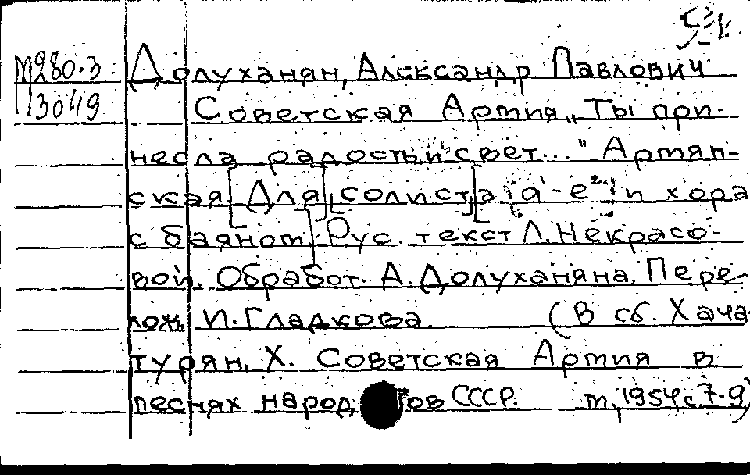 М280.3 Долуханян, Александр Павлович
13049 Советская Армия „Ты при-
несла радость и свет..." Армян-
ская [Для] [солиста] [a - e²] и хора
с баяном. Рус. текст Л. Некрасо-
вой. Обработ. А. Долуханяна. Пере-
лож. И. Гладкова. (В сб. Хача-
турян, Х. Советская Армия в
песнях народов СССР. М, 1954, с 7-9)